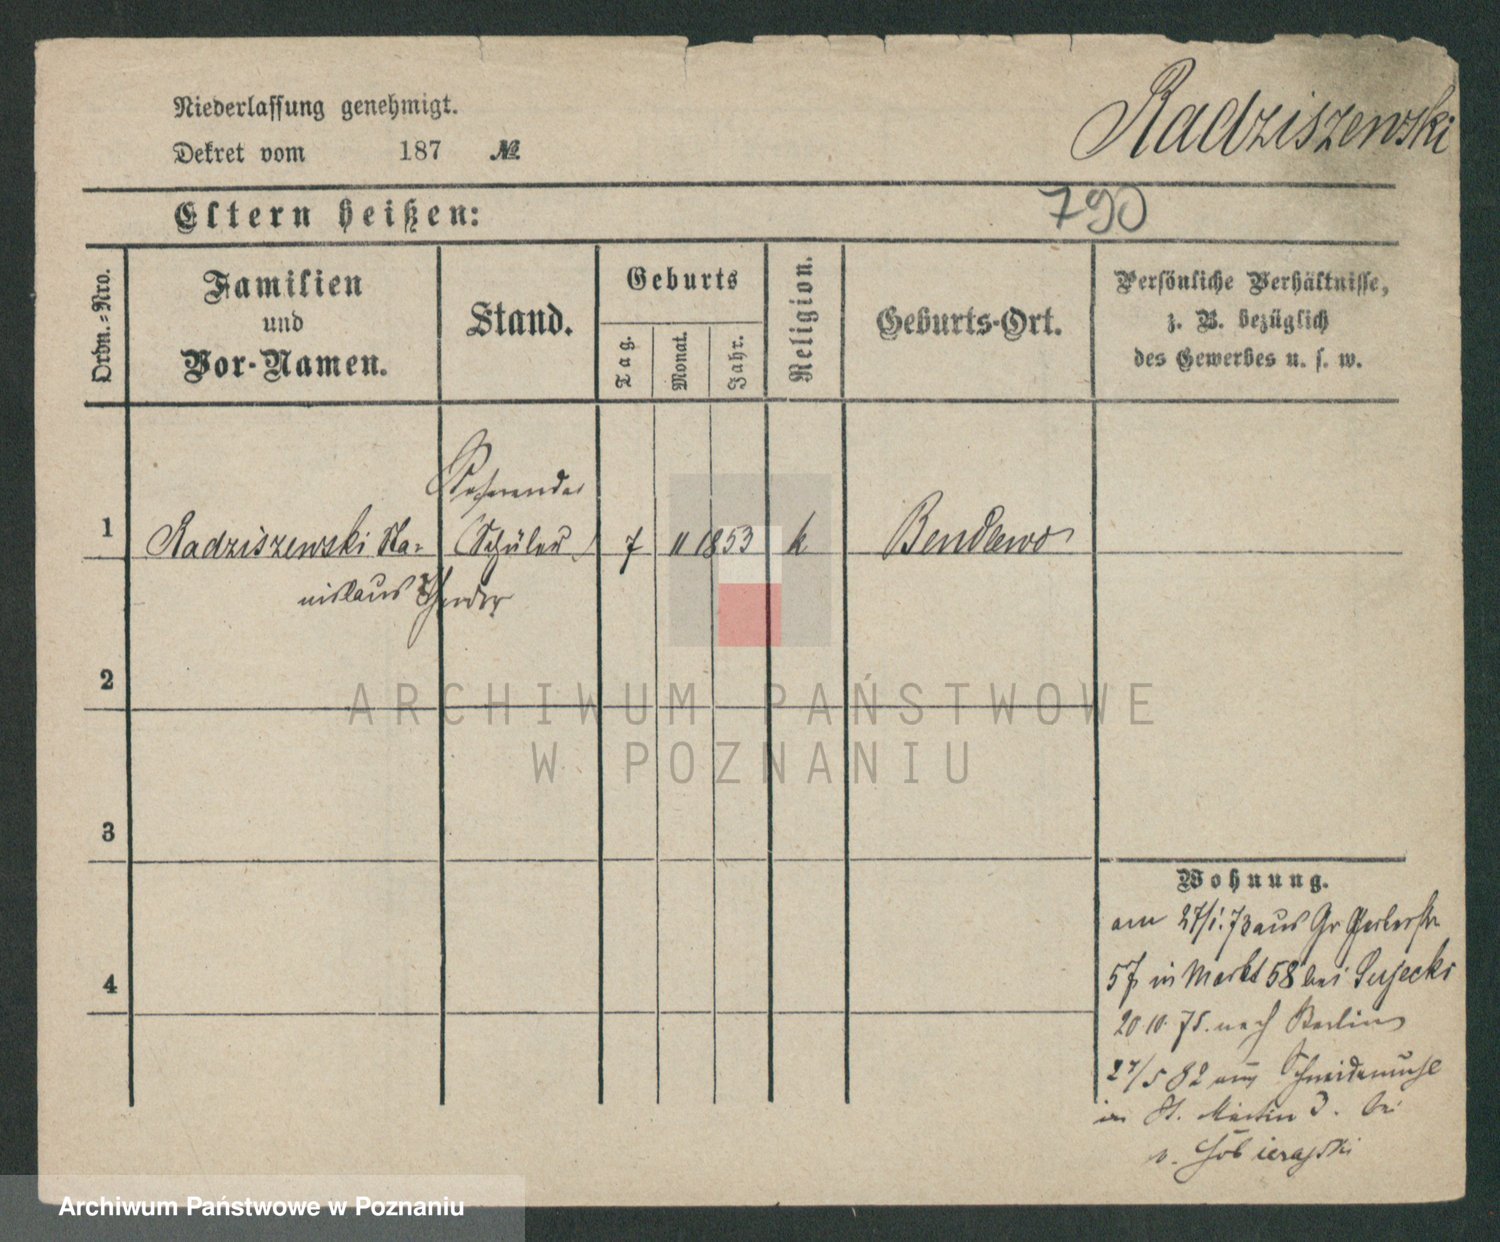 Niederlassung genehmigt.
Dekret vom 187 №
Radziszewski
Eltern heißen:
790
Ordn.-Nro.
Familien
und
Vor-Namen.
Stand.
Geburts
Tag.
Monat.
Jahr.
Religion.
Geburts-Ort.
Persönliche Verhältnisse,
z. B. bezüglich
des Gewerbes u. s. w.
Referendar
1 Radziszewski Sta- (Schüler) 7 11 1853 k Bendlewo
nislaus
2
3
4
ARCHIWUM PAŃSTWOWE
W POZNANIU
Wohnung.
am 27/1.73 aus Gr Gerberstr
57 in Markt 58 bei
20 10. 75. nach Berlin
27/5 82 aus Schneidemühl
in St. Martin 3. bei
v.
Archiwum Państwowe w Poznaniu